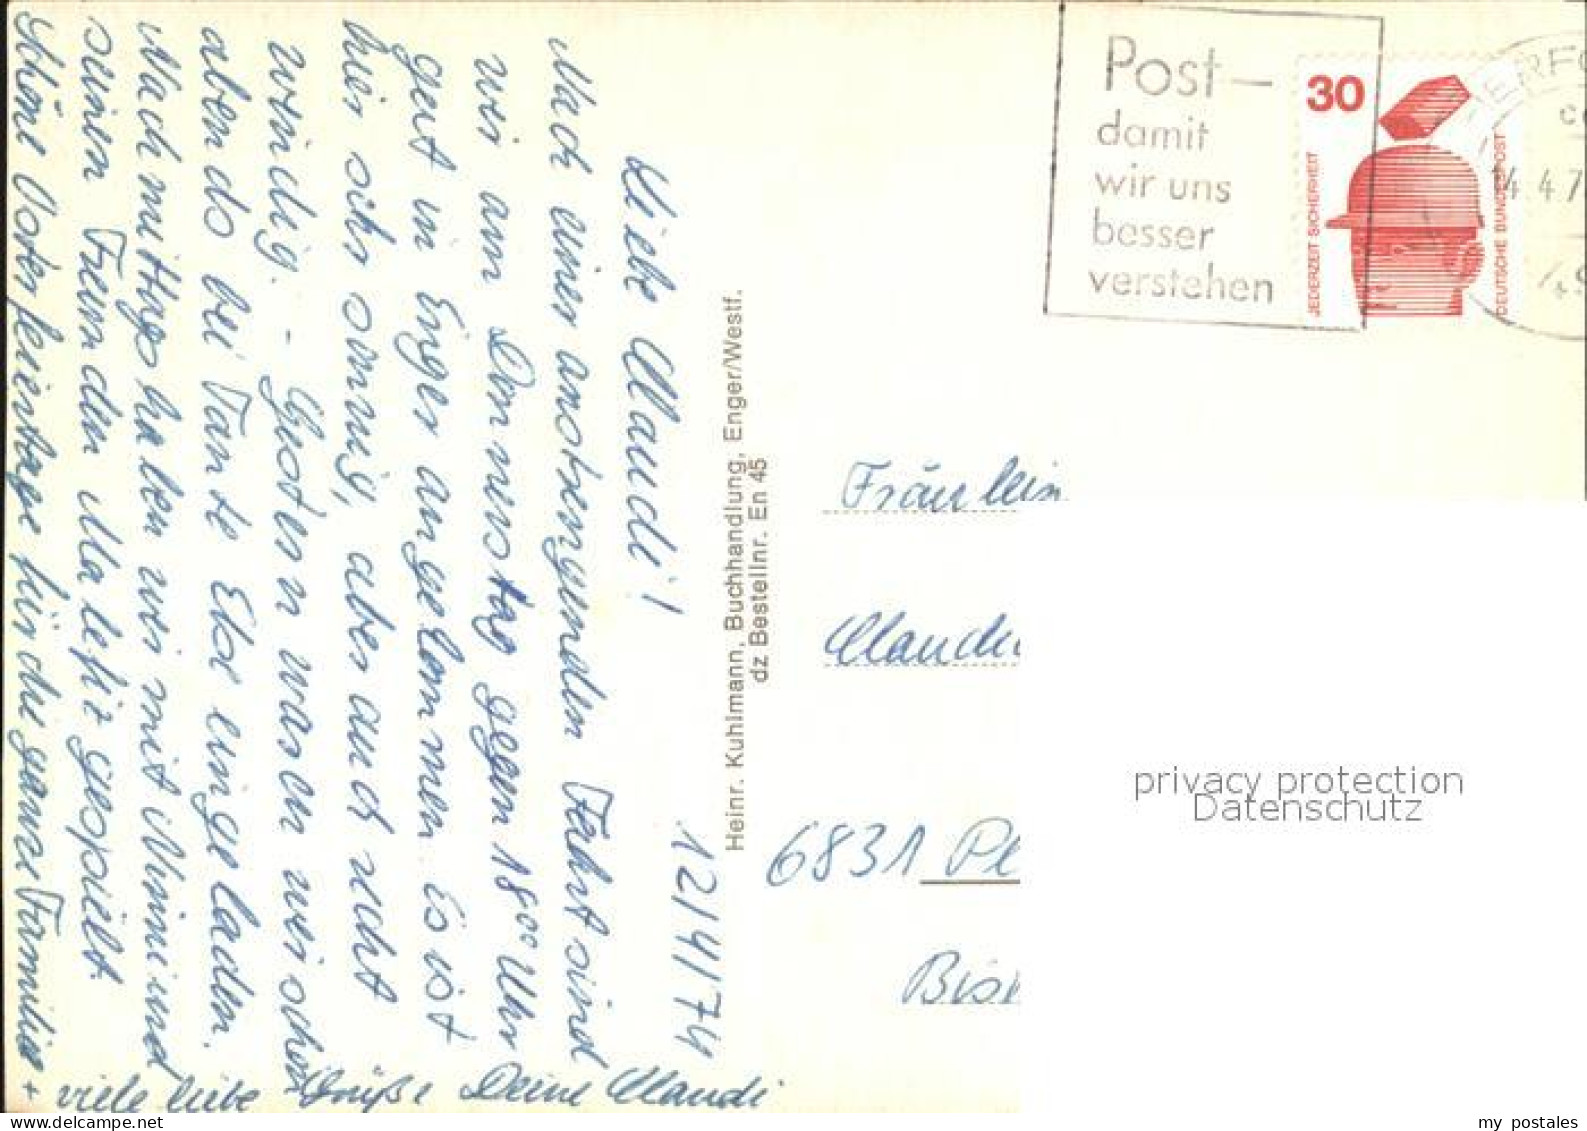 12/4/74
Liebe Claudi!
Nach einer anstrengenden Fahrt sind
wir am Donnerstag gegen 18⁰⁰ Uhr
gut in Enger angekommen. Es ist
hier sehr sonnig, aber auch recht
windig. - Gestern waren wir schon
abends bei Tante Else eingeladen.
Nachmittags haben wir mit Mimi und
seinen Freunden Malefiz gespielt.
Schöne Osterfeiertage für die ganze Familie
+ viele liebe Grüße Deine Claudi
Heinr. Kuhlmann, Buchhandlung, Enger/Westf.
dz Bestellnr. En 45
Post –
damit
wir uns
besser
verstehen
30
JEDERZEIT SICHERHEIT
DEUTSCHE BUNDESPOST
ERFO
14.4.7
49
Fräulein
Claudi
6831 Pl
Bis
privacy protection
Datenschutz
my postales